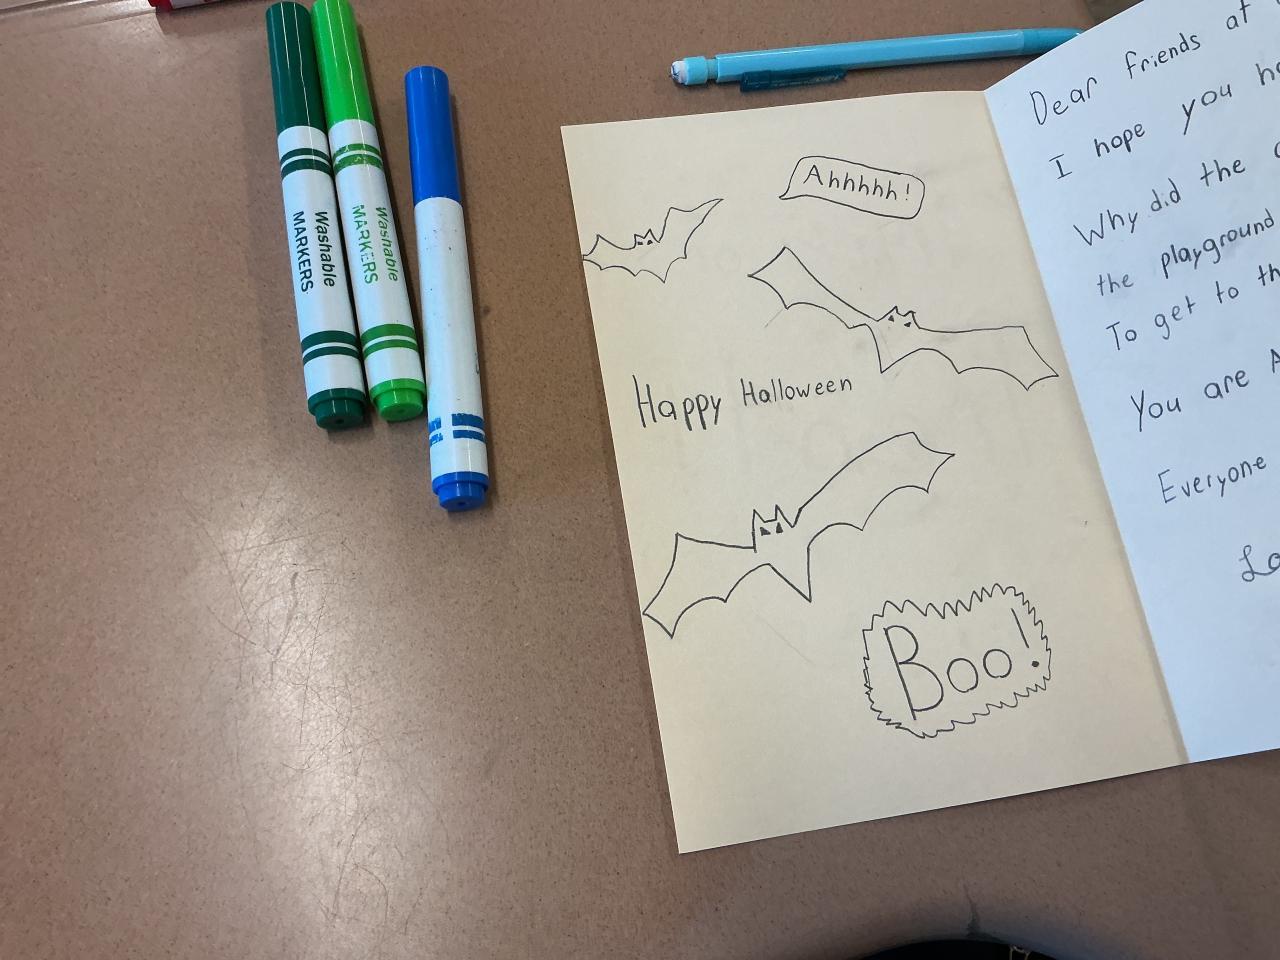 Washable
MARKERS
Washable
MARKERS
Ahhhhh!
Happy Halloween
Boo!
Dear friends at
I hope you
Why did the
the playground
To get to
You are
Everyone